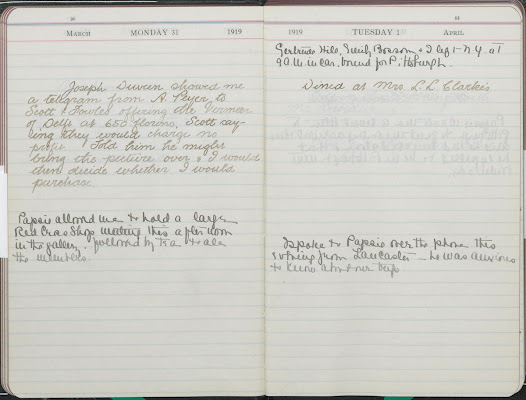 90
MARCH MONDAY 31 1919
Joseph Duveen showed me
a telegram from A. Peyer, to
Scott & Fowles offering the Vermeer
of Delft at 650 florins, Scott say-
ing they would charge no
profit. Told him he might
bring the picture over & I would
then decide whether I would
purchase.
Papsie allowed me to hold a large
Red Cross Shop meeting this afternoon
in the gallery. followed by tea to all
the members.
91
1919 TUESDAY 1 APRIL
Gertrude Hill, Emily & I left N.Y. at
9 a.m. in car, bound for Pittsburgh.
Dined at Mrs. L. L. Clarke's
I spoke to Papsie over the phone this
evening from Lancaster — he was anxious
to know about our trip